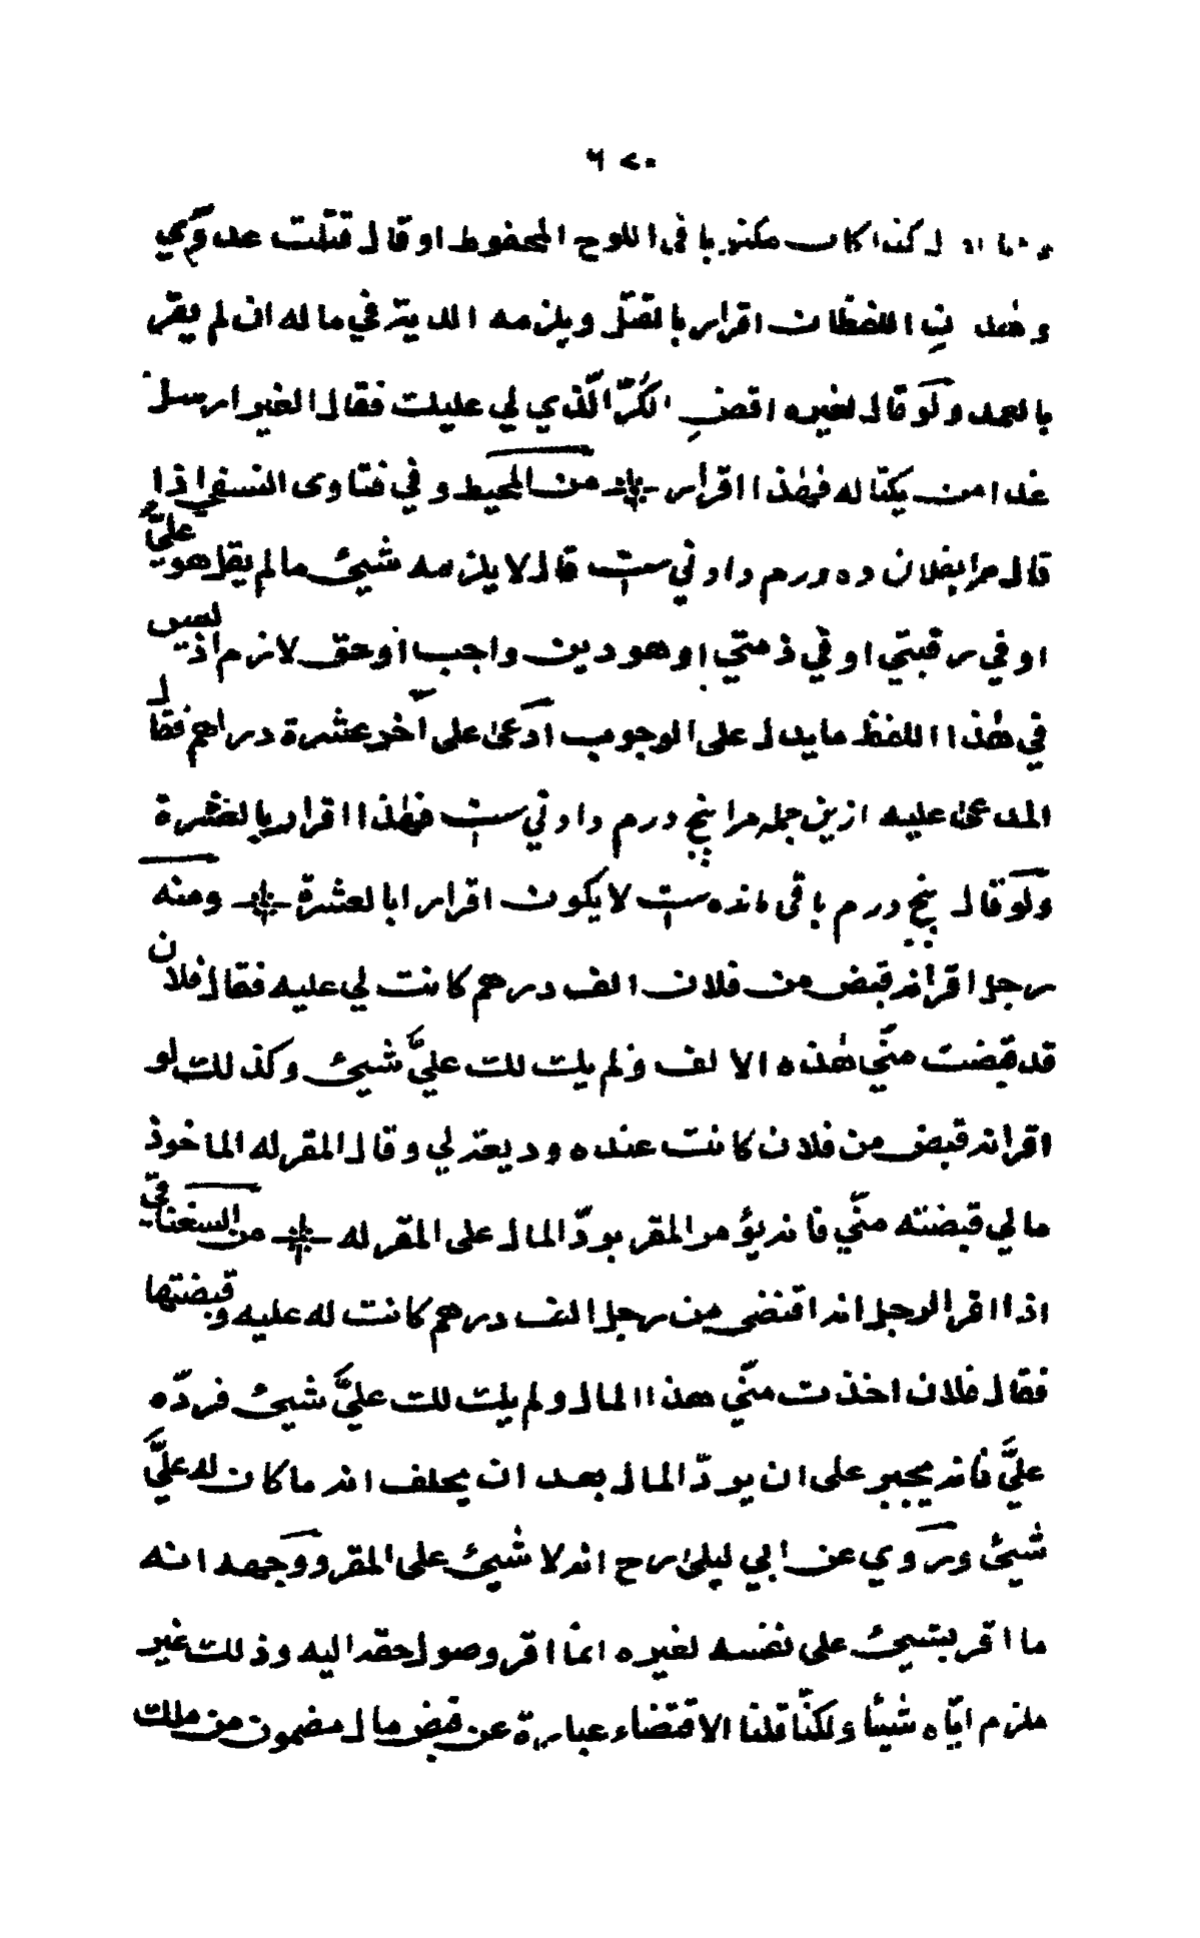 ٦٢٠
كذا كان مكتوبا فى اللوح المحفوظ او قال قتلت عدوّي
وهذان اللفظان اقرار بالقتل ويلزمه الدية في ماله ان لم يقر
بالعمد ولو قال لغيره اقضِ الكُرّ الّذي لي عليك فقال الغير ارسل
غدا من يكتاله فهٰذا اقرار من المحيط وفي فتاوى النسفي اذا
قال مرا بفلان ده درم دادني ست قال لا يلزمه شيئ ما لم يقل هو عليّ
او في رقبتي او في ذمتي او هو دين واجب او حق لازم اذ ليس
في هٰذا اللفظ ما يدل على الوجوب ادّعىٰ على آخر عشرة دراهم فقال
المدعىٰ عليه ازين جمله مرا پنج درم دادني ست فهٰذا اقرار بالعشرة
ولو قال پنج درم باقى مانده ست لا يكون اقرارا بالعشرة ومنه
رجل اقر انه قبض من فلان الف درهم كانت لي عليه فقال فلان
قد قبضت منّي هٰذه الالف ولم يك لك عليَّ شيئ وكذلك لو
اقر انه قبض من فلان كانت عنده وديعة لي وقال المقر له الماخوذ
مالي قبضته منّي فانه يؤمر المقر بردّ المال على المقر له من السغناقيّ
اذا اقر الرجل انه اقتضى من رجل الف درهم كانت له عليه وقبضتها
فقال فلان اخذت منّي هذا المال ولم يك لك عليَّ شيئ فردّه
عليَّ فانه يجبر على ان يردّ المال بعد ان يحلف انه ما كان له عليَّ
شيئ وروي عن ابي ليلىٰ رح انه لا شيئ على المقر ووجهه انه
ما اقر بشيئ على نفسه لغيره انما اقر وصول حقه اليه وذلك غير
ملزم ايّاه شيئا ولكنّا قلنا الاقتضاء عبارة عن قبض مال مضمون من ملك